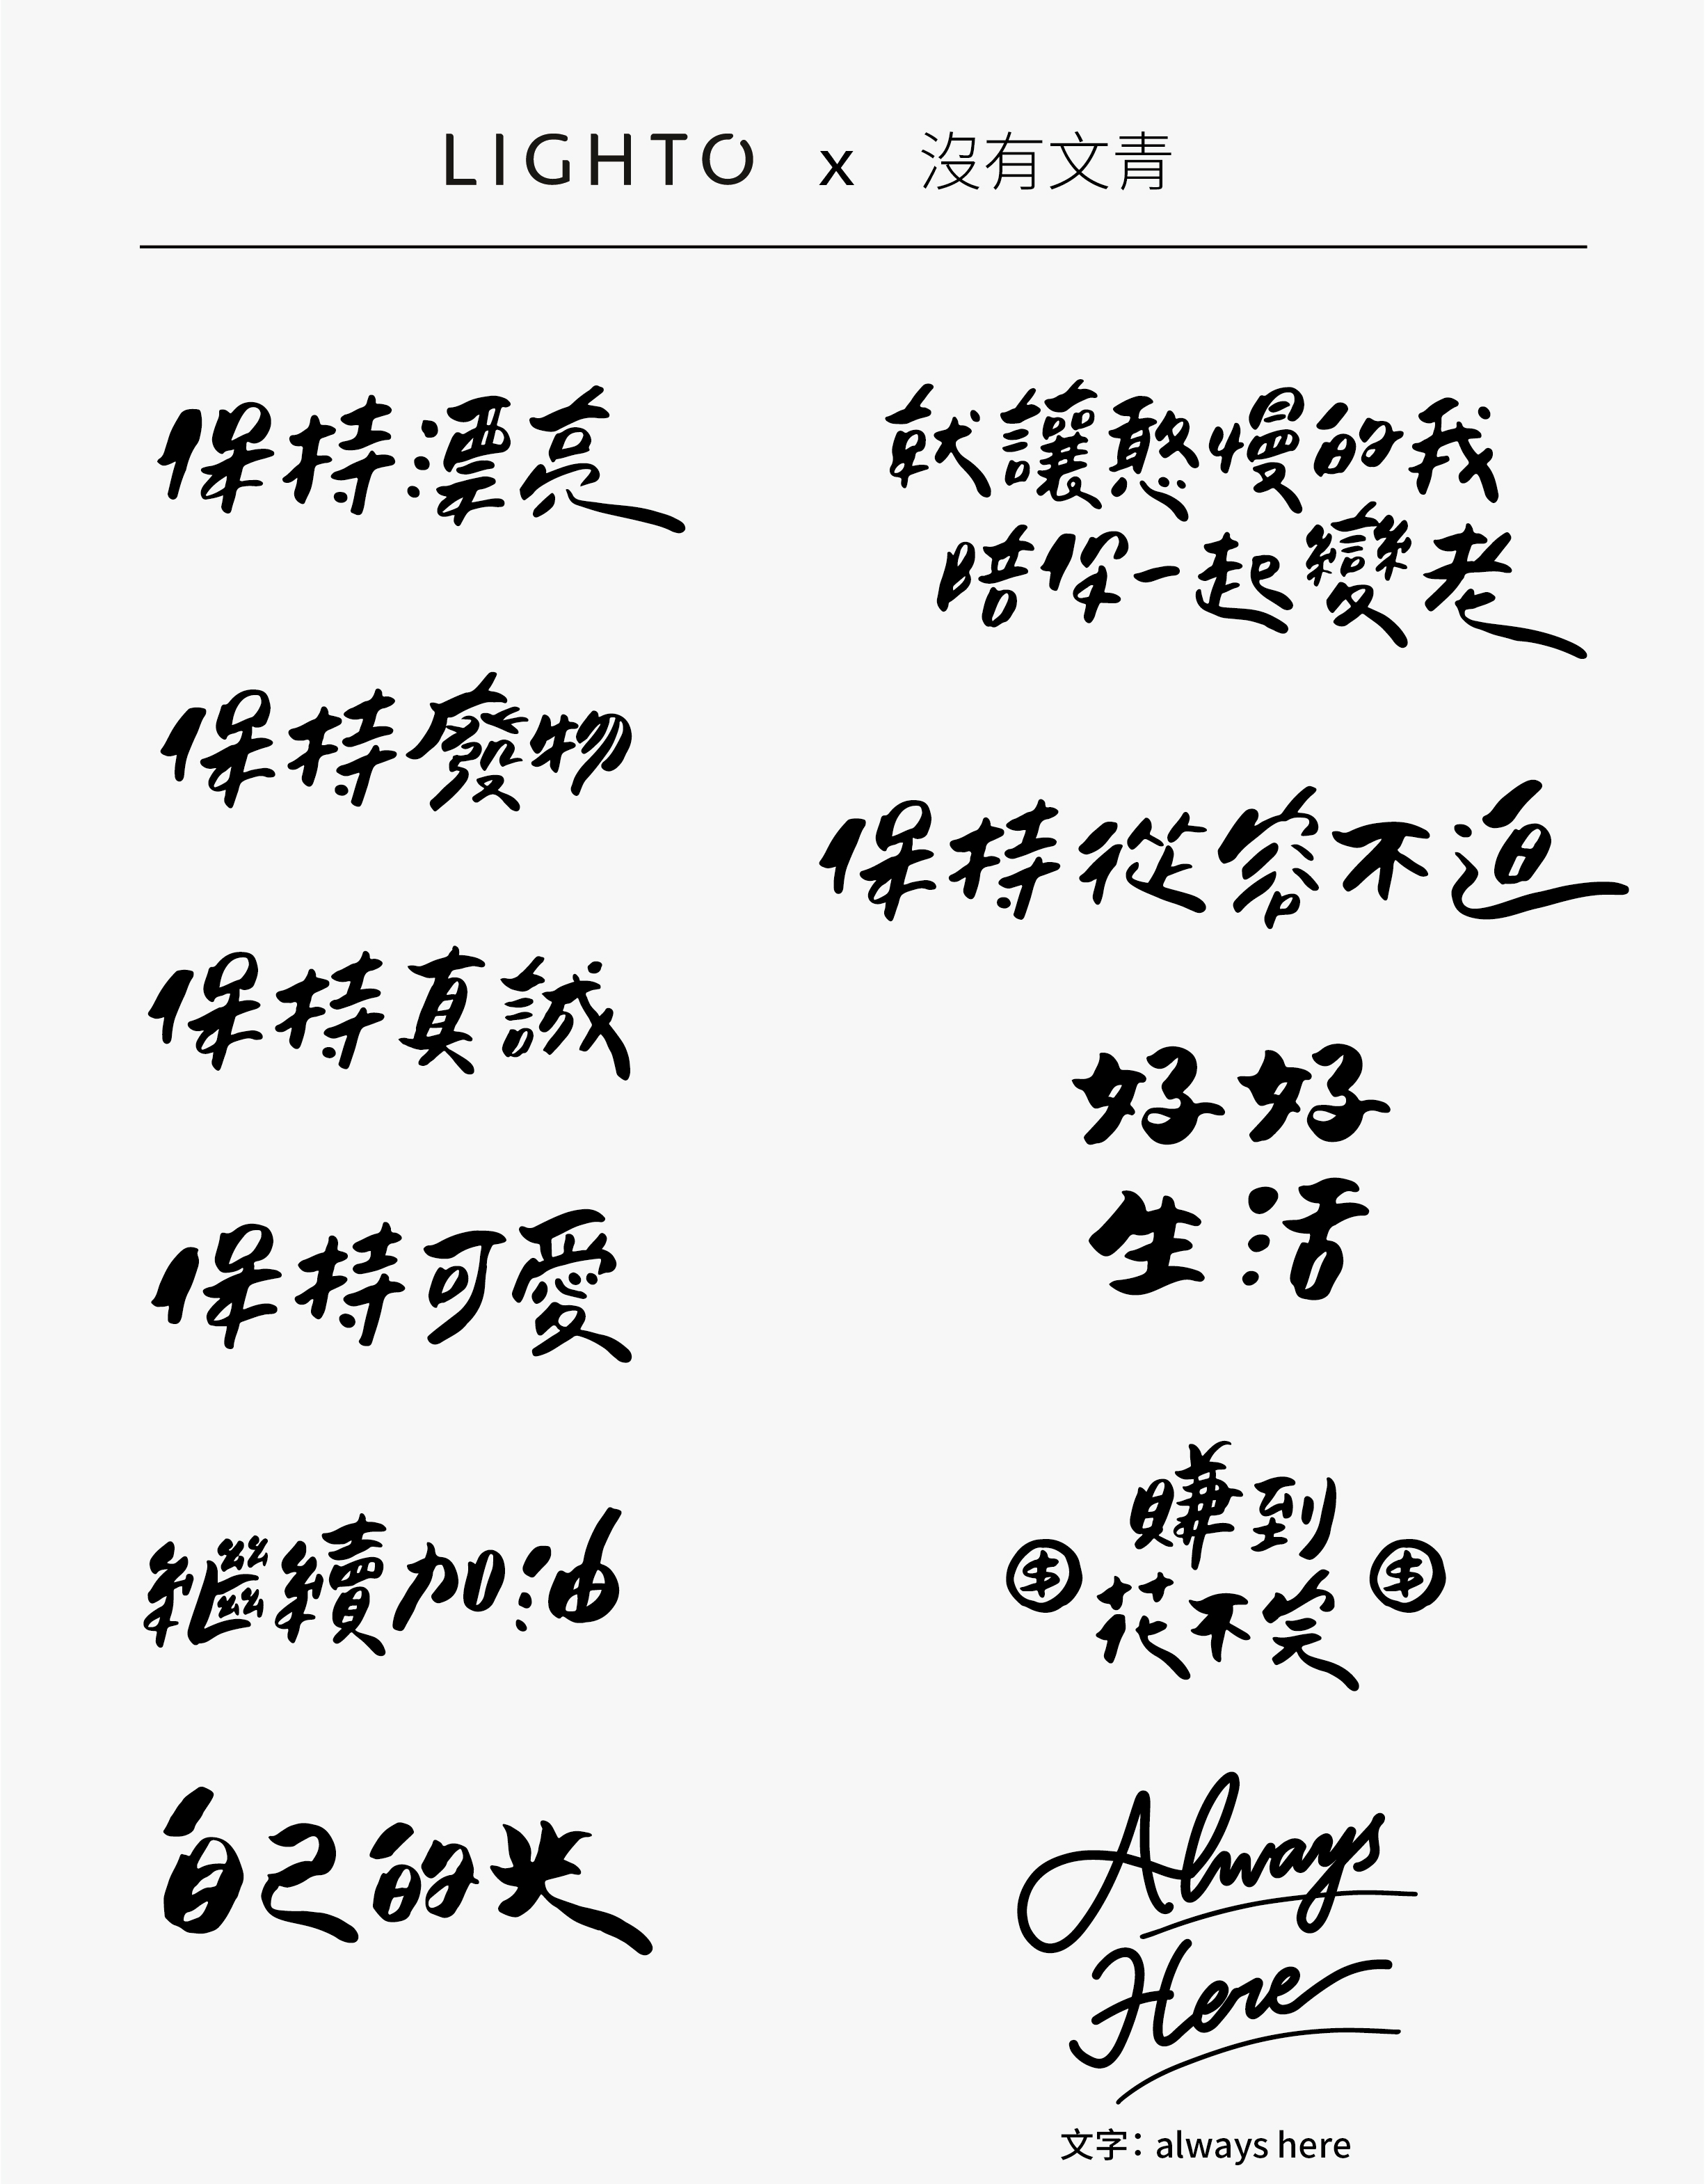 LIGHTO x 沒有文青
保持漂亮
保持廢物
保持真誠
保持可愛
繼續加油
自己的光
就讓憨慢的我
陪你一起變老
保持從容不迫
好好
生活
賺到
花不完
Always
Here
文字：always here